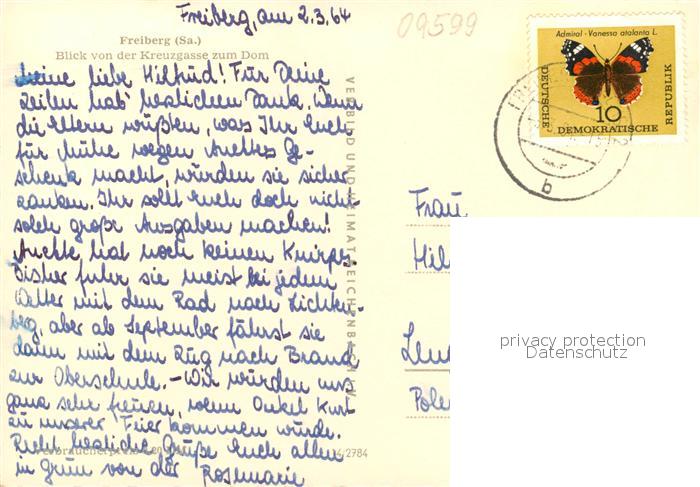 Freiberg, am 2.3.64
09599
Freiberg (Sa.)
Blick von der Kreuzgasse zum Dom
Meine liebe Hiltrud! Für Deine
Zeilen hab' herzlichen Dank. Wenn
die Eltern wüßten, was Ihr Euch
für Mühe wegen Anettes Ge-
schenk macht, würden sie sicher
zanken. Ihr sollt Euch doch nicht
solch große Ausgaben machen!
Anette hat noch keinen Knirps.
Bisher fuhr sie meist bei jedem
Wetter mit dem Rad nach Lichten-
berg, aber ab September fährt sie
dann mit dem Zug nach Brand
zur Oberschule. - Wir würden uns
ganz sehr freuen, wenn Onkel Kurt
zu unserer Feier kommen würde.
Recht herzliche Grüße Euch allen
in grün von der Rosemarie
VERLAG BILD UND HEIMAT REICHENBACH I. V.
Verbraucherpreis
2784
Admiral - Vanessa atalanta L.
DEUTSCHE
DEMOKRATISCHE
REPUBLIK
10
b
Frau
Hil
privacy protection
Datenschutz